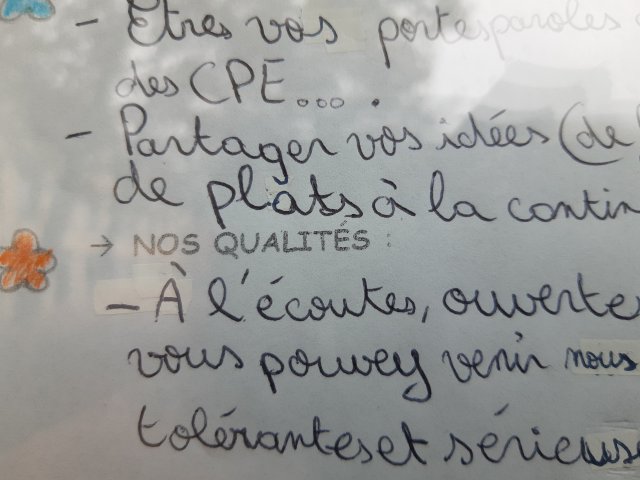 - Etres vos portesparoles
des CPE... .
- Partager vos idées (de
de plats à la contin
→ NOS QUALITÉS :
- À l'écoutes, ouvertes
vous pouvey venir nous
tolérantes et sérieuse